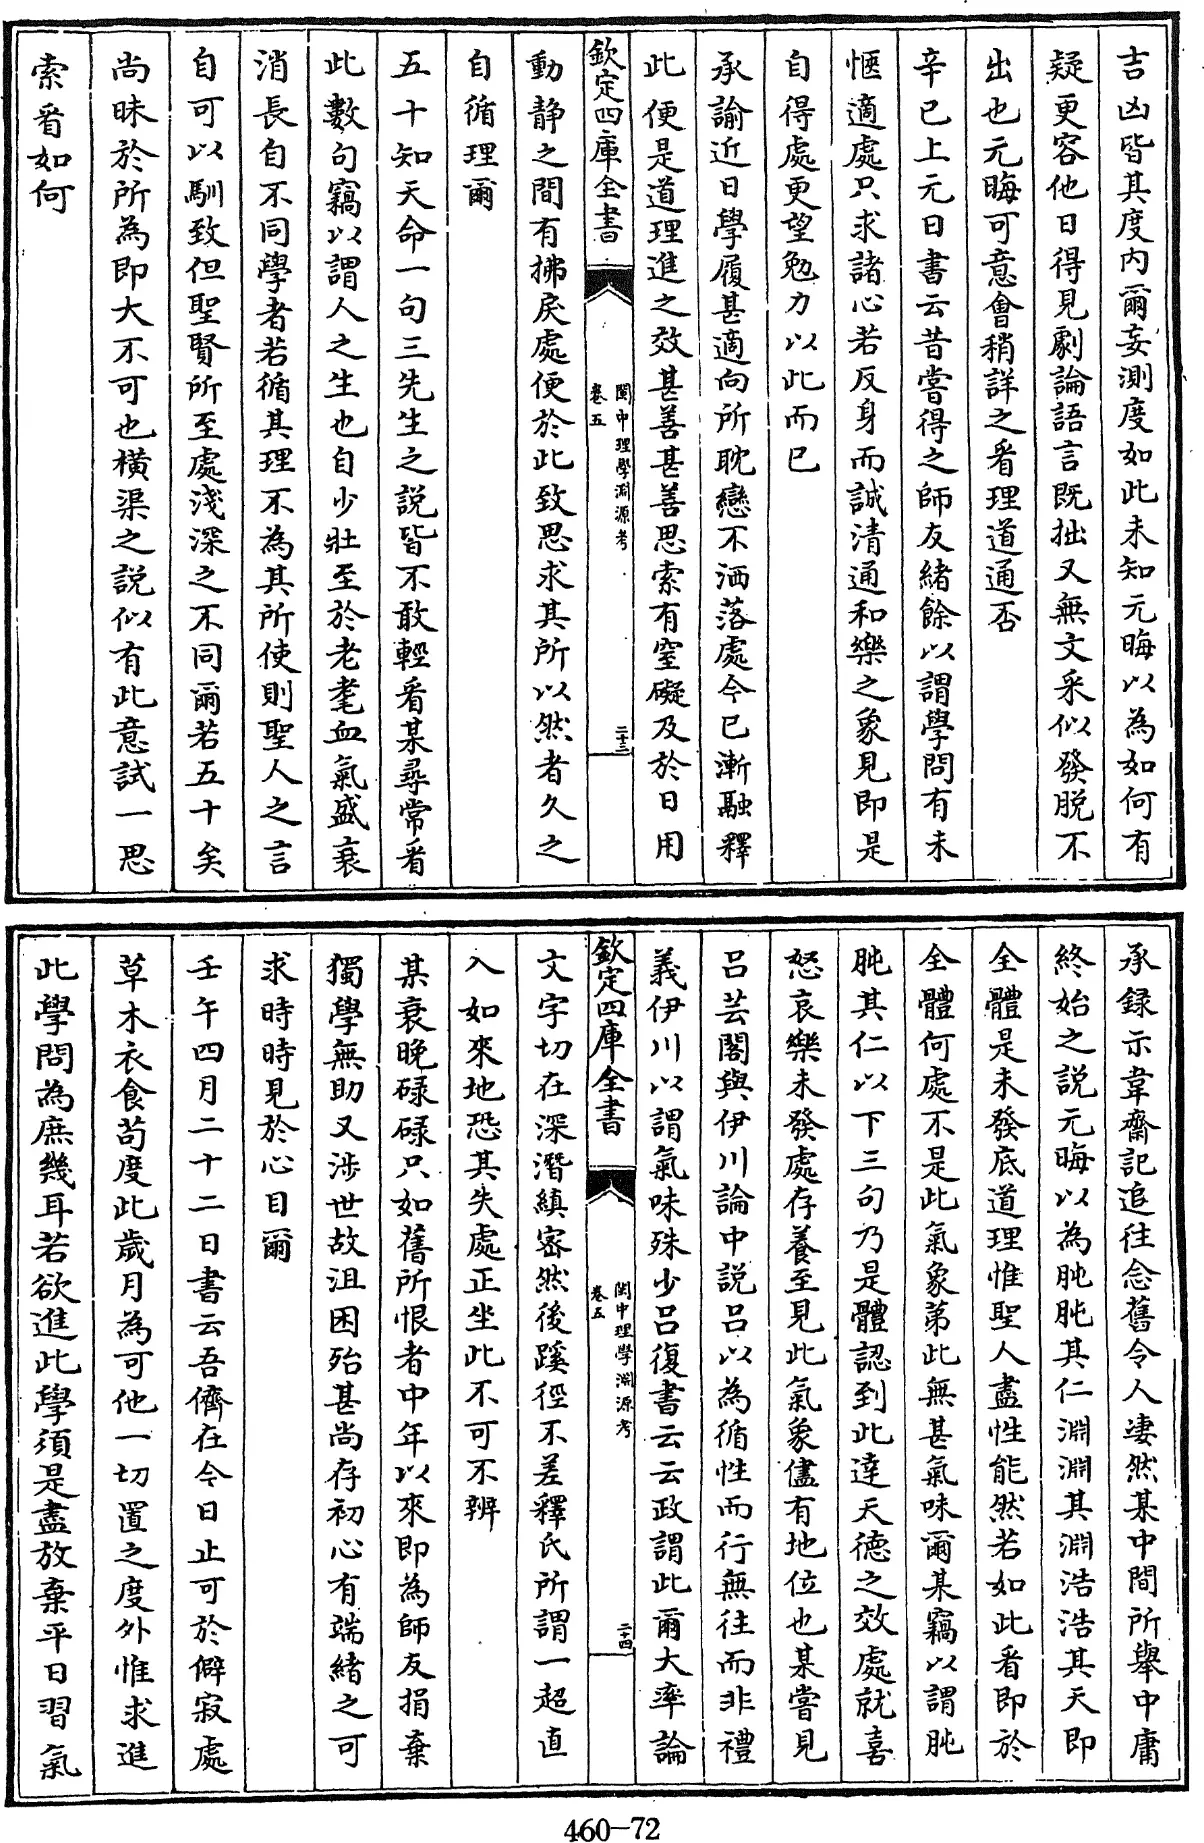 吉凶皆其度内爾妄測度如此未知元晦以為如何有
疑更容他日得見劇論語言既拙又無文采似發脱不
出也元晦可意會稍詳之看理道通否
辛巳上元日書云昔嘗得之師友緒餘以謂學問有未
愜適處只求諸心若反身而誠清通和樂之象見即是
自得處更望勉力以此而已
承諭近日學履甚適向所耽戀不洒落處今已漸融釋
此便是道理進之效甚善甚善思索有窒礙及於日用
欽定四庫全書
閩中理學淵源考
卷五
二十三
動静之間有拂戾處便於此致思求其所以然者久之
自循理爾
五十知天命一句三先生之説皆不敢輕看某尋常看
此數句竊以謂人之生也自少壯至於老耄血氣盛衰
消長自不同學者若循其理不為其所使則聖人之言
自可以馴致但聖賢所至處淺深之不同爾若五十矣
尚昧於所為即大不可也横渠之説似有此意試一思
索看如何
承録示韋齋記追往念舊令人凄然某中間所舉中庸
終始之説元晦以為肫肫其仁淵淵其淵浩浩其天即
全體是未發底道理惟聖人盡性能然若如此看即於
全體何處不是此氣象第此無甚氣味爾某竊以謂肫
肫其仁以下三句乃是體認到此達天德之效處就喜
怒哀樂未發處存養至見此氣象儘有地位也某嘗見
吕芸閣與伊川論中説吕以為循性而行無往而非禮
義伊川以謂氣味殊少吕復書云云政謂此爾大率論
欽定四庫全書
閩中理學淵源考
卷五
二十四
文字切在深潛縝密然後蹊徑不差釋氏所謂一超直
入如來地恐其失處正坐此不可不辨
某衰晚碌碌只如舊所恨者中年以來即為師友捐棄
獨學無助又涉世故沮困殆甚尚存初心有端緒之可
求時時見於心目爾
壬午四月二十二日書云吾儕在今日止可於僻寂處
草木衣食苟度此歲月為可他一切置之度外惟求進
此學問為庶幾耳若欲進此學須是盡放棄平日習氣
460-72